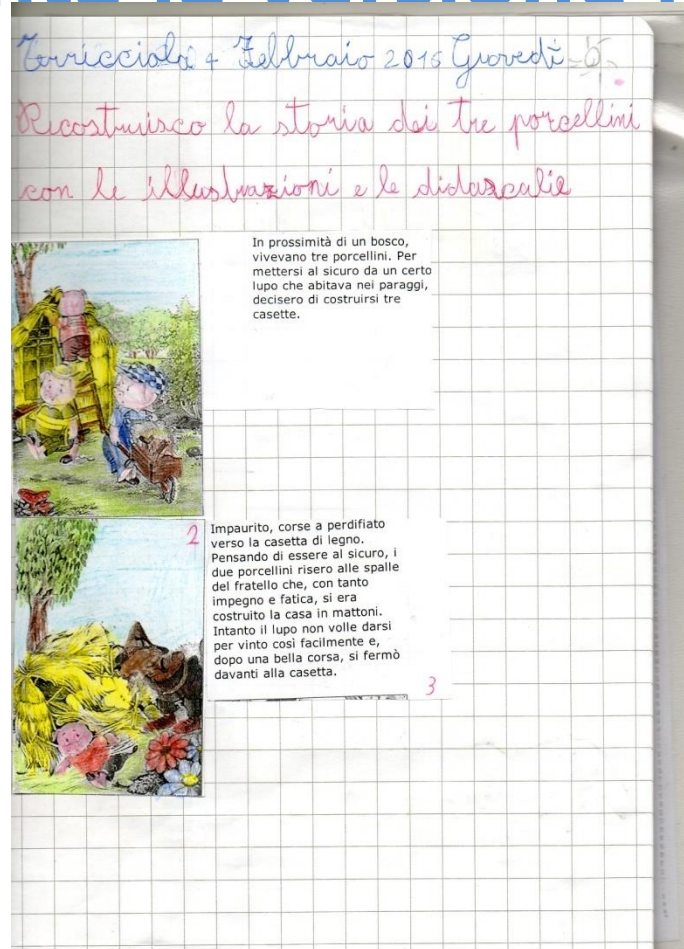 Torricciola 4 Febbraio 2016 Giovedì
Ricostruisco la storia dei tre porcellini
con le illustrazioni e le didascalie
In prossimità di un bosco,
vivevano tre porcellini. Per
mettersi al sicuro da un certo
lupo che abitava nei paraggi,
decisero di costruirsi tre
casette.
2
Impaurito, corse a perdifiato
verso la casetta di legno.
Pensando di essere al sicuro, i
due porcellini risero alle spalle
del fratello che, con tanto
impegno e fatica, si era
costruito la casa in mattoni.
Intanto il lupo non volle darsi
per vinto così facilmente e,
dopo una bella corsa, si fermò
davanti alla casetta.
3